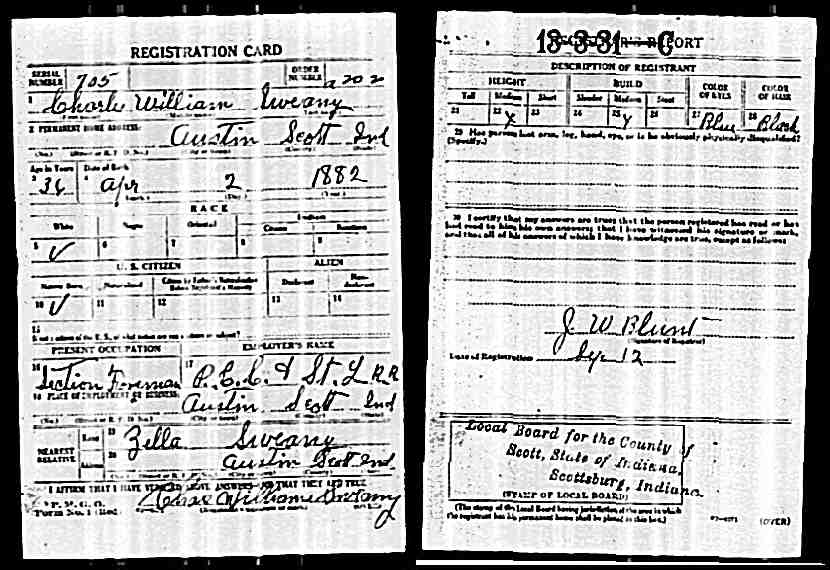 REGISTRATION CARD
SERIAL NUMBER 705 ORDER NUMBER a 202
1 Charle William Sweany
2 PERMANENT HOME ADDRESS:
Austin Scott Ind
Age in Years Date of Birth
3 36 4 Apr 2 1882
RACE
White Negro Oriental Indian
Citizen Noncitizen
5 ✓ 6 7 8 9
U. S. CITIZEN ALIEN
Native Born Naturalized Citizen by Father's Naturalization Before Registrant's Majority Declarant Non-declarant
10 ✓ 11 12 13 14
15
PRESENT OCCUPATION EMPLOYER'S NAME
16 Section Foreman 17 P. C. C. & St. L R R
18 PLACE OF EMPLOYMENT OR BUSINESS:
Austin Scott Ind
NEAREST RELATIVE
Name 19 Zella Sweany
Address 20 Austin Scott Ind
I AFFIRM THAT I HAVE VERIFIED ABOVE ANSWERS AND THAT THEY ARE TRUE
P. M. G. O.
Form No. 1
Chas William Sweany
13-3-31-C
REGISTRAR'S REPORT
DESCRIPTION OF REGISTRANT
HEIGHT BUILD COLOR OF EYES COLOR OF HAIR
Tall Medium Short Slender Medium Stout
21 22 X 23 24 25 Y 26 27 Blue 28 Black
29 Has person lost arm, leg, hand, eye, or is he obviously physically disqualified?
(Specify.)
30 I certify that my answers are true; that the person registered has read or has
had read to him his own answers; that I have witnessed his signature or mark,
and that all of his answers of which I have knowledge are true, except as follows:
J. W. Blunt
(Signature of Registrar)
Date of Registration Sep 12
Local Board for the County of
Scott, State of Indiana,
Scottsburg, Indiana.
(STAMP OF LOCAL BOARD)
(The stamp of the Local Board having jurisdiction of the area in which
the registrant has his permanent home shall be placed in this box.)
(OVER)